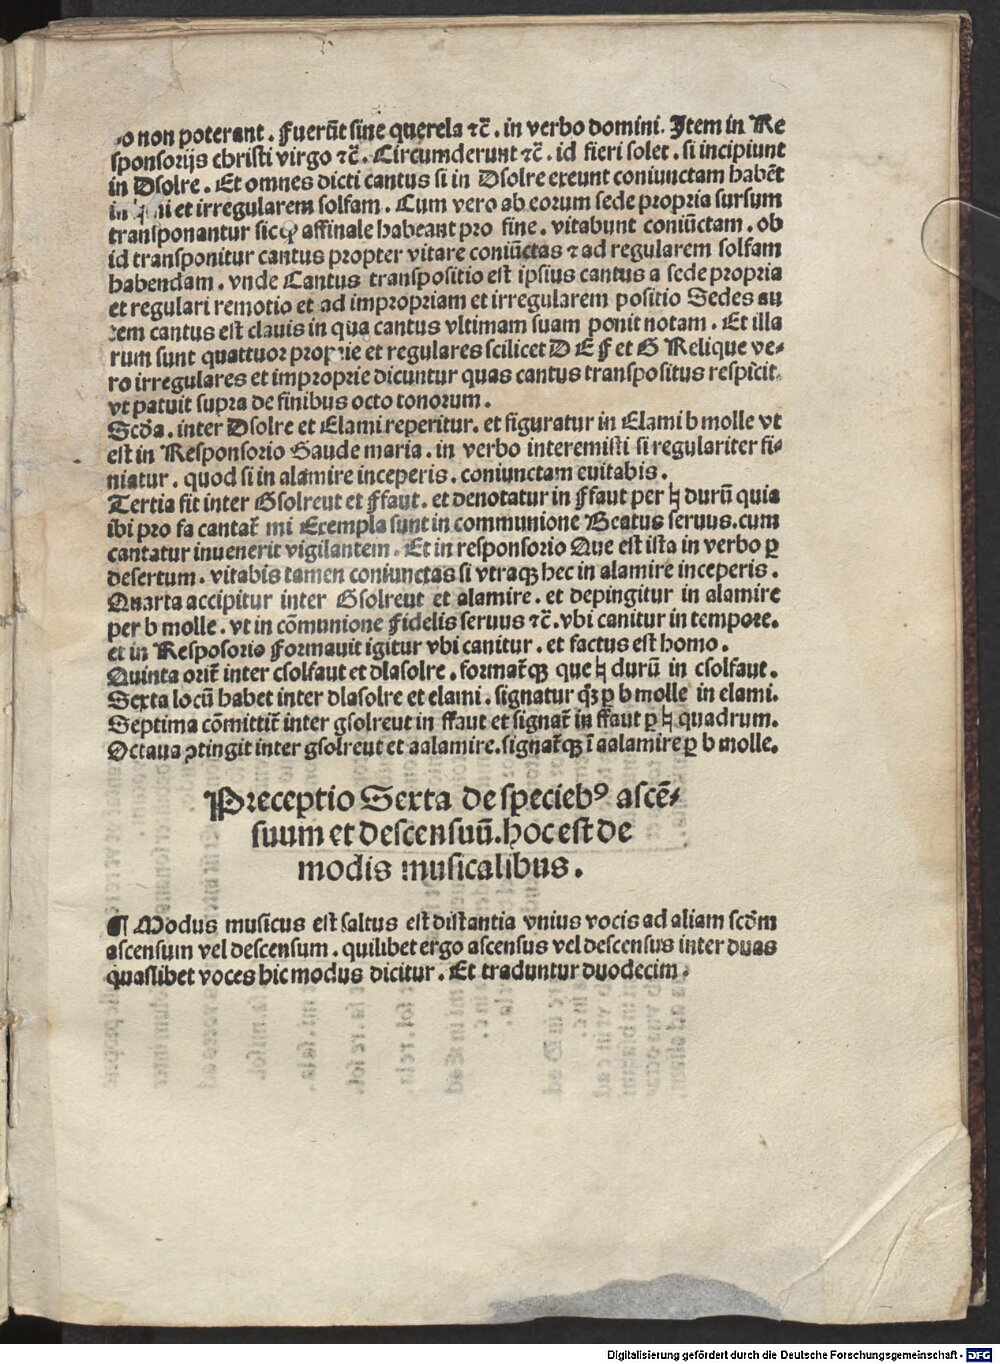 o non poterant. fuerūt sine querela ⁊c̄. in verbo domini. Item in Re
sponsorijs christi virgo ⁊c̄. Circumderunt ⁊c̄. id fieri solet. si incipiunt
in Dsolre. Et omnes dicti cantus si in Dsolre exeunt coniunctam habēt
et irregularem solfam. Cum vero ab eorum sede propria sursum
transponantur sicq affinale habeant pro fine. vitabunt coniūctam. ob
id transponitur cantus propter vitare coniūctas ⁊ ad regularem solfam
habendam. vnde Cantus transpositio est ipsius cantus a sede propria
et regulari remotio et ad impropriam et irregularem positio Sedes au
tem cantus est clauis in qua cantus vltimam suam ponit notam. Et illa
rum sunt quattuor proprie et regulares scilicet D E F et G Relique ve⸗
ro irregulares et improprie dicuntur quas cantus transpositus respicit
vt patuit supra de finibus octo tonorum.
Scd̄a. inter Dsolre et Elami reperitur. et figuratur in Elami b molle vt
est in Responsorio Gaude maria. in verbo interemisti si regulariter fi⸗
niatur. quod si in alamire inceperis. coniunctam euitabis.
Tertia fit inter Gsolreut et ffaut. et denotatur in ffaut per ♮ durū quia
ibi pro fa cantat᷑ mi Exempla sunt in communione Beatus seruus. cum
cantatur inuenerit vigilantem. Et in responsorio Que est ista in verbo ꝑ
desertum. vitabis tamen coniunctas si vtraqꝫ hec in alamire inceperis.
Quarta accipitur inter Gsolreut et alamire. et depingitur in alamire
per b molle. vt in cōmunione Fidelis seruus ⁊c̄. vbi canitur in tempore.
et in Resposorio Formauit igitur vbi canitur. et factus est homo.
Quinta orit᷑ inter csolfaut et dlasolre. format᷑qꝫ que ♮ durū in csolfaut.
Sexta locū habet inter dlasolre et elami. signatur qꝫ ꝑ b molle in elami.
Septima cōmittit᷑ inter gsolreut in ffaut et signat᷑ in ffaut ꝑ ♮ quadrum.
Octaua ꝯtingit inter gsolreut et aalamire. signat᷑qꝫ ī aalamire ꝑ b molle.
Preceptio Sexta de specieb⁹ ascē⸗
suum et descensuū. hoc est de
modis musicalibus.
¶ Modus musicus est saltus est distantia vnius vocis ad aliam scd̄m
ascensum vel descensum. quilibet ergo ascensus vel descensus inter duas
quaslibet voces hic modus dicitur. Et traduntur duodecim.
Digitalisierung gefördert durch die Deutsche Forschungsgemeinschaft - DFG